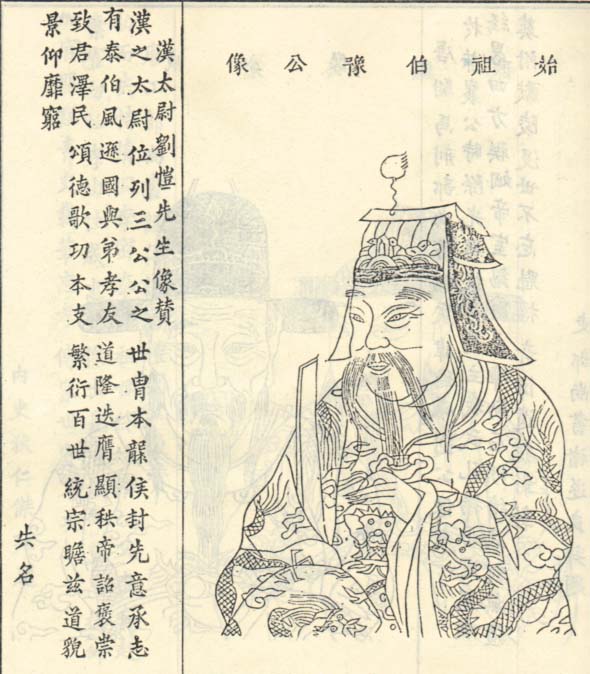 始祖伯豫公像
漢太尉劉愷先生像贊
漢之太尉位列三公公之世冑本侯封先意承志
有泰伯風遜國與弟孝友道隆迭膺顯秩帝詔褒崇
致君澤民頌德歌功本支繁衍百世統宗瞻茲道貌
景仰靡窮
失名